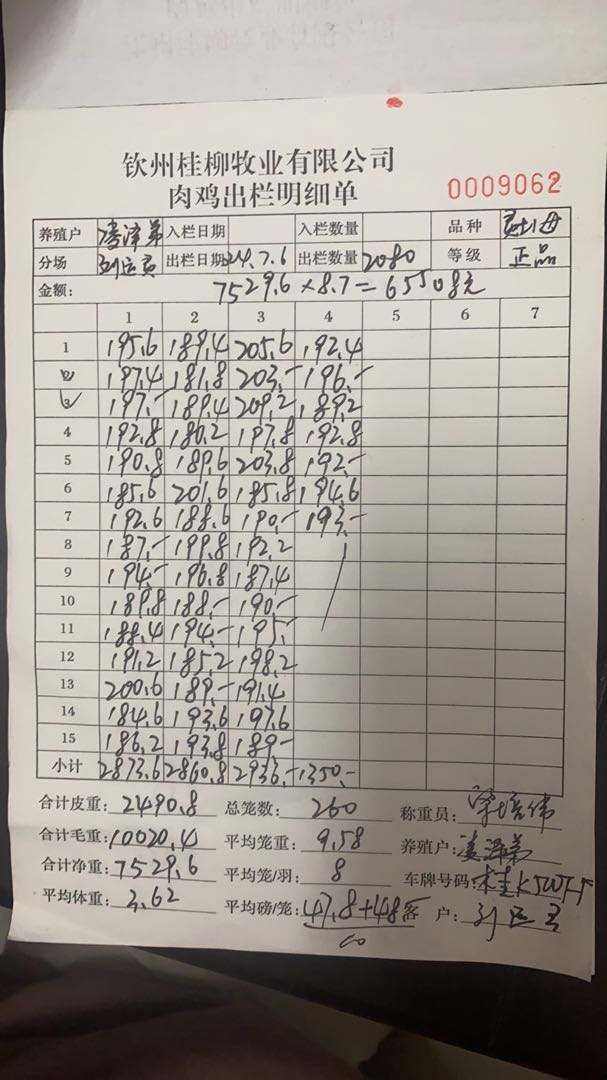 钦州桂柳牧业有限公司
肉鸡出栏明细单
0009062
养殖户 凌泽弟 入栏日期 入栏数量 品种
分场 出栏日期 24.7.6 出栏数量 2080 等级 正品
金额: 7529.6×8.7=65508元
1 2 3 4 5 6 7
1 195.6 189.4 205.6 192.4
2 197.4 181.8 203.- 196.-
3 197.- 189.4 209.2 189.2
4 192.8 180.2 197.8 192.8
5 190.8 189.6 203.8 192.-
6 185.6 201.6 185.8 194.6
7 192.6 188.6 190.- 193.-
8 187.- 199.8 192.2
9 194.- 196.8 187.4
10 189.8 188.- 190.-
11 188.4 194.- 195.-
12 191.2 185.2 198.2
13 200.6 189.- 191.4
14 184.6 193.6 197.6
15 186.2 193.8 189.-
小计 2873.6 2860.8 2936.- 1350.-
合计皮重: 2490.8 总笼数: 260 称重员:
合计毛重: 10020.4 平均笼重: 9.58 养殖户: 凌泽弟
合计净重: 7529.6 平均笼/羽: 8 车牌号码:
平均体重: 3.62 平均磅/笼: 47.8+48 客户: